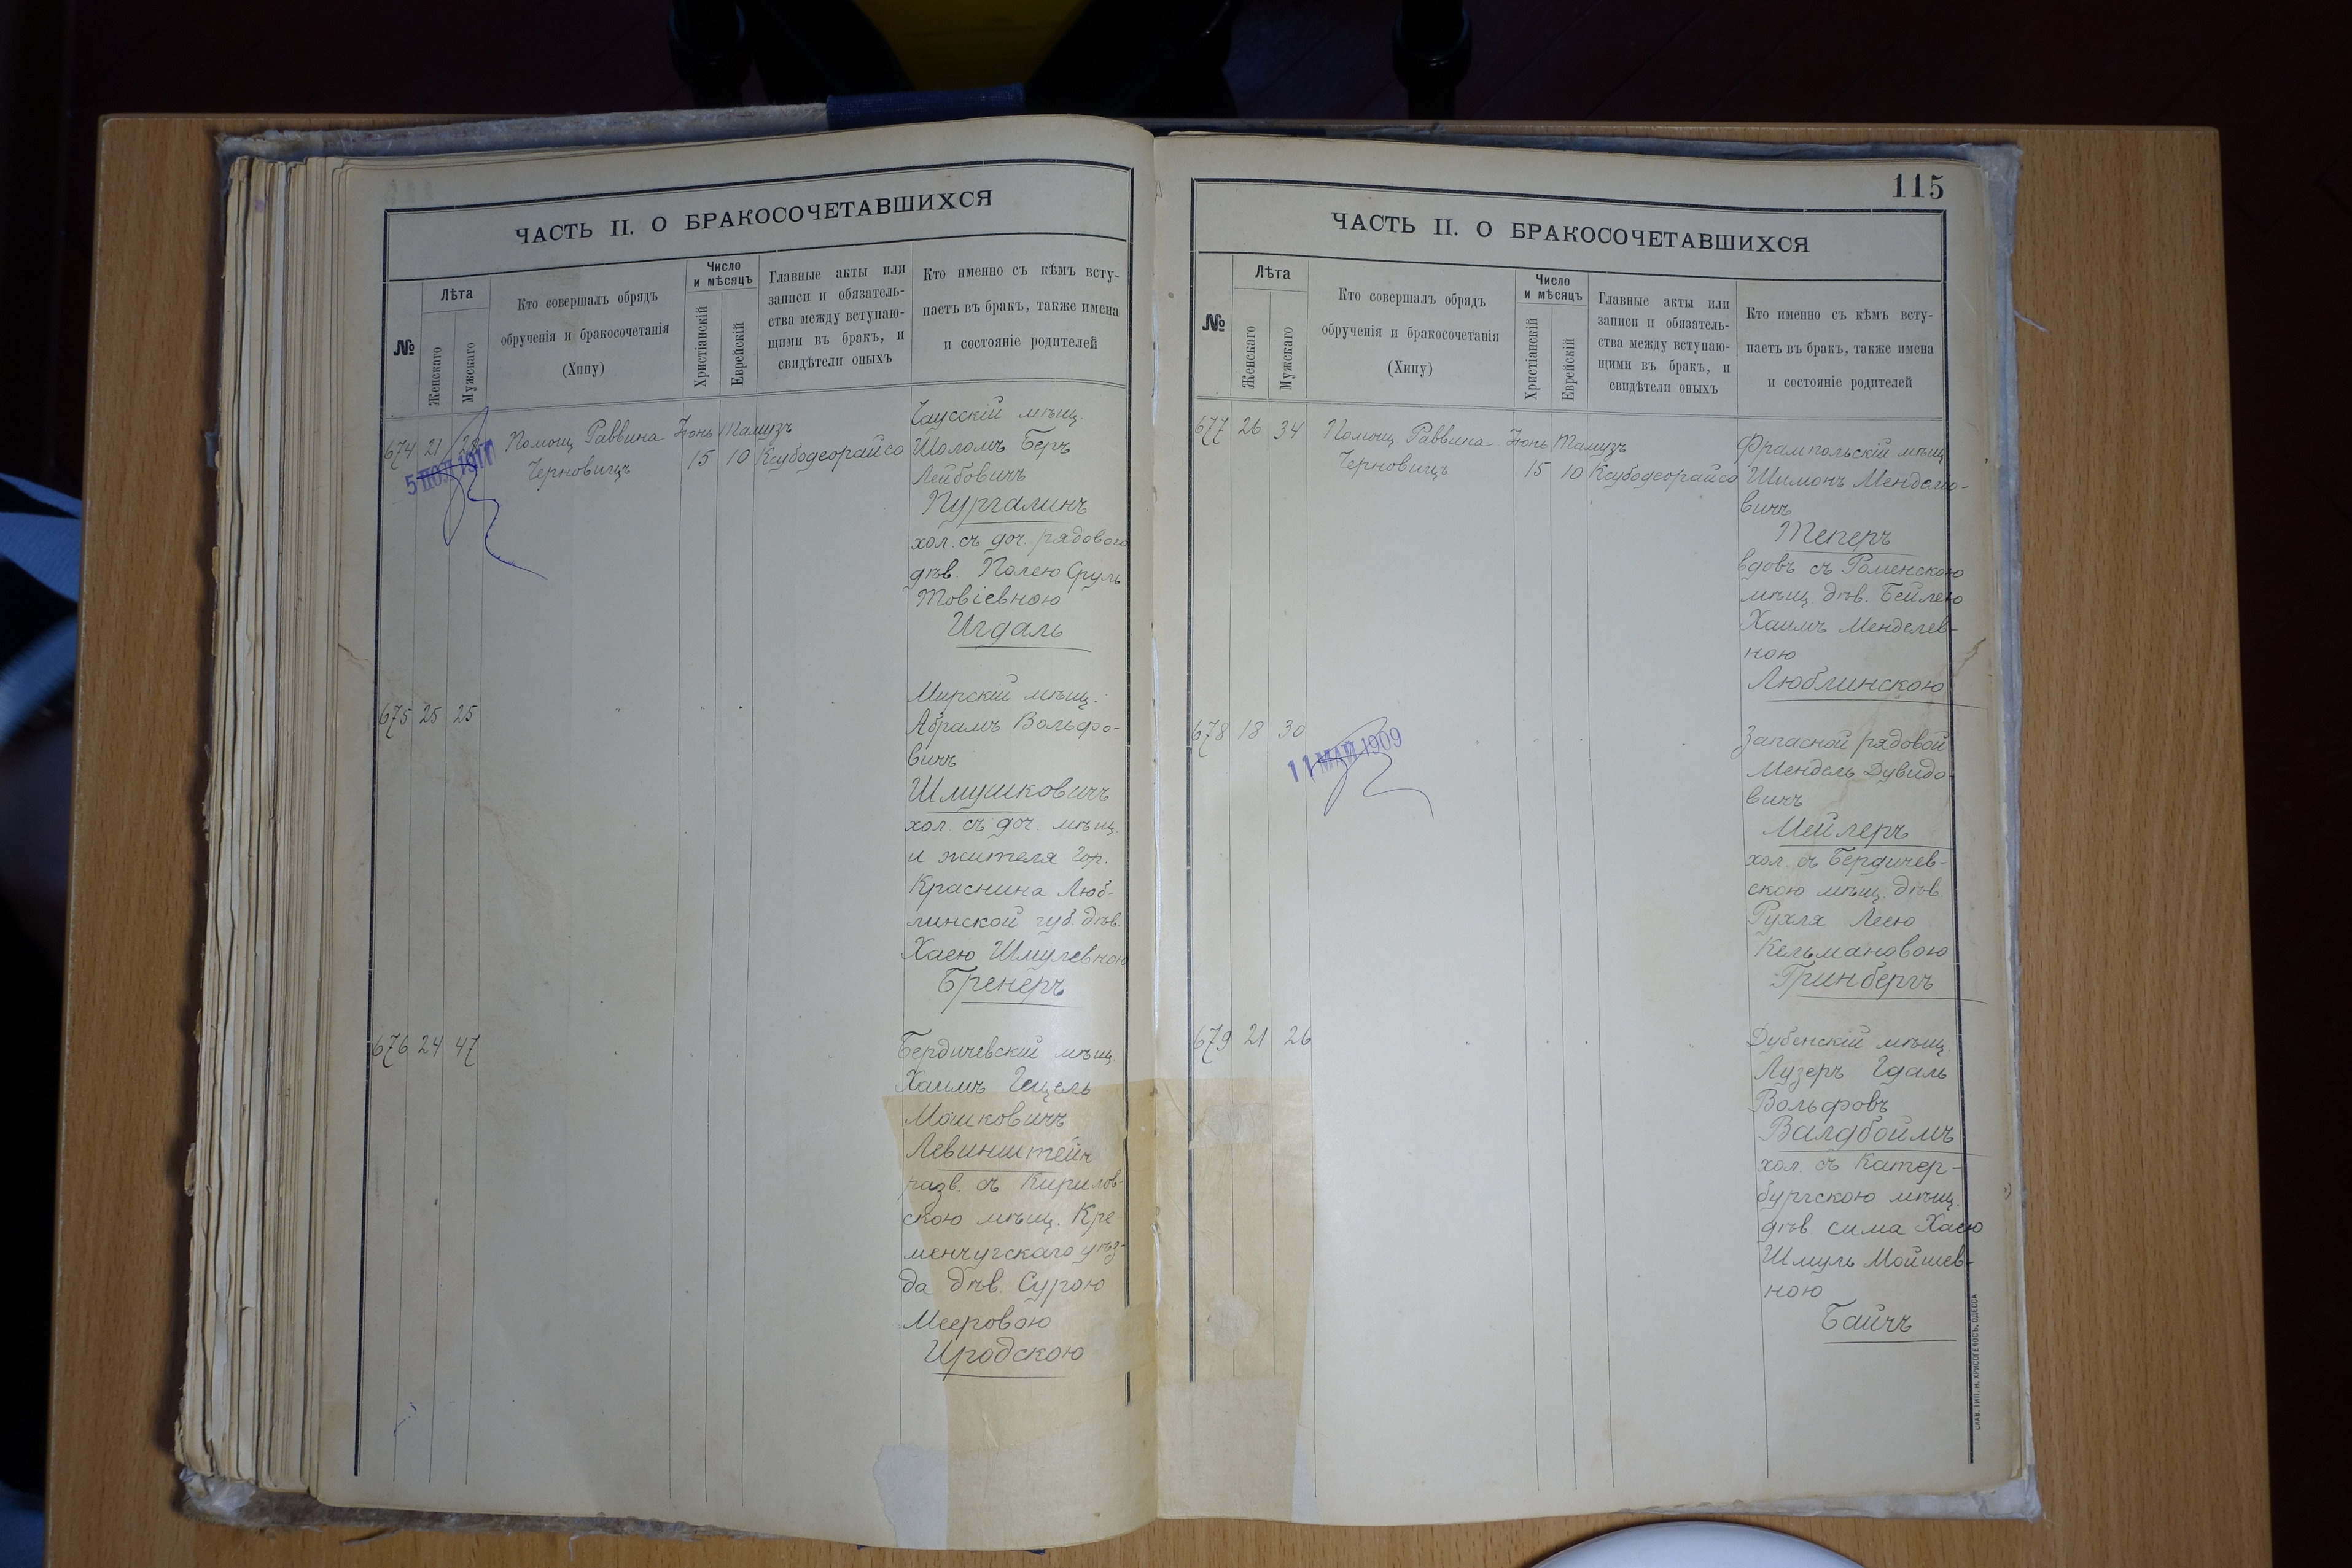 ЧАСТЬ II. О БРАКОСОЧЕТАВШИХСЯ
№
Лѣта
Женскаго
Мужскаго
Кто совершалъ обрядъ
обрученія и бракосочетанія
(Хипу)
Число
и мѣсяцъ
Христіанскій
Еврейскій
Главные акты или
записи и обязатель-
ства между вступаю-
щими въ бракъ, и
свидѣтели оныхъ
Кто именно съ кѣмъ всту-
паетъ въ бракъ, также имена
и состояніе родителей
674 21 28 Помощ Раввина Іюнь Тамузъ
Черновицъ 15 10 Ксубодеорайсо
5 1911
Чаусскій мѣщ.
Шоломъ Беръ
Лейбовичъ
Пургалинъ
хол. съ доч. рядового
дѣв. Полею Сруль
Товіевною
Игдаль
675 25 25
Мирскій мѣщ.
Абрамъ Вольфо-
вичъ
Шмушковичъ
хол. съ доч. мѣщ.
и жителя гор.
Краснина Люб-
линской губ. дѣв.
Хаею Шмулевною
Бренеръ
676 24 47
Бердичевскій мѣщ
Хаимъ Гецель
Мошковичъ
Левинштейн
разв. съ Кирилов-
скою мѣщ. Кре
менчугскаго уѣз-
да дѣв. Сурою
Мееровою
Иродскою
115
ЧАСТЬ II. О БРАКОСОЧЕТАВШИХСЯ
№
Лѣта
Женскаго
Мужскаго
Кто совершалъ обрядъ
обрученія и бракосочетанія
(Хипу)
Число
и мѣсяцъ
Христіанскій
Еврейскій
Главные акты или
записи и обязатель-
ства между вступаю-
щими въ бракъ, и
свидѣтели оныхъ
Кто именно съ кѣмъ всту-
паетъ въ бракъ, также имена
и состояніе родителей
677 26 34 Помощ Раввина Іюнь Тамузъ
Черновицъ 15 10 Ксубодеорайсо
Фрампольскій мѣщ
Шимонъ Менделіо-
вичъ
Теперъ
вдовъ съ Роменскою
мѣщ. дѣв. Бейлею
Хаимъ Менделев-
ною
Люблинскою
678 18 30
11 МАЙ 1909
Запасной рядовой
Мендель Дувидо-
вичъ
Мейлеръ
хол. съ Бердичев-
скою мѣщ. дѣв.
Рухля Леею
Кельмановою
Гринбергъ
679 21 26
Дубенскій мѣщ.
Лузеръ Гдаль
Вольфовъ
Валдбоймъ
хол. съ Катер-
бургскою мѣщ.
дѣв сима Хаею
Шмуль Мойшев-
ною
Байчъ
СЛАВ. ТИП. Н. ХРИСОГЕЛОСЪ, ОДЕССА